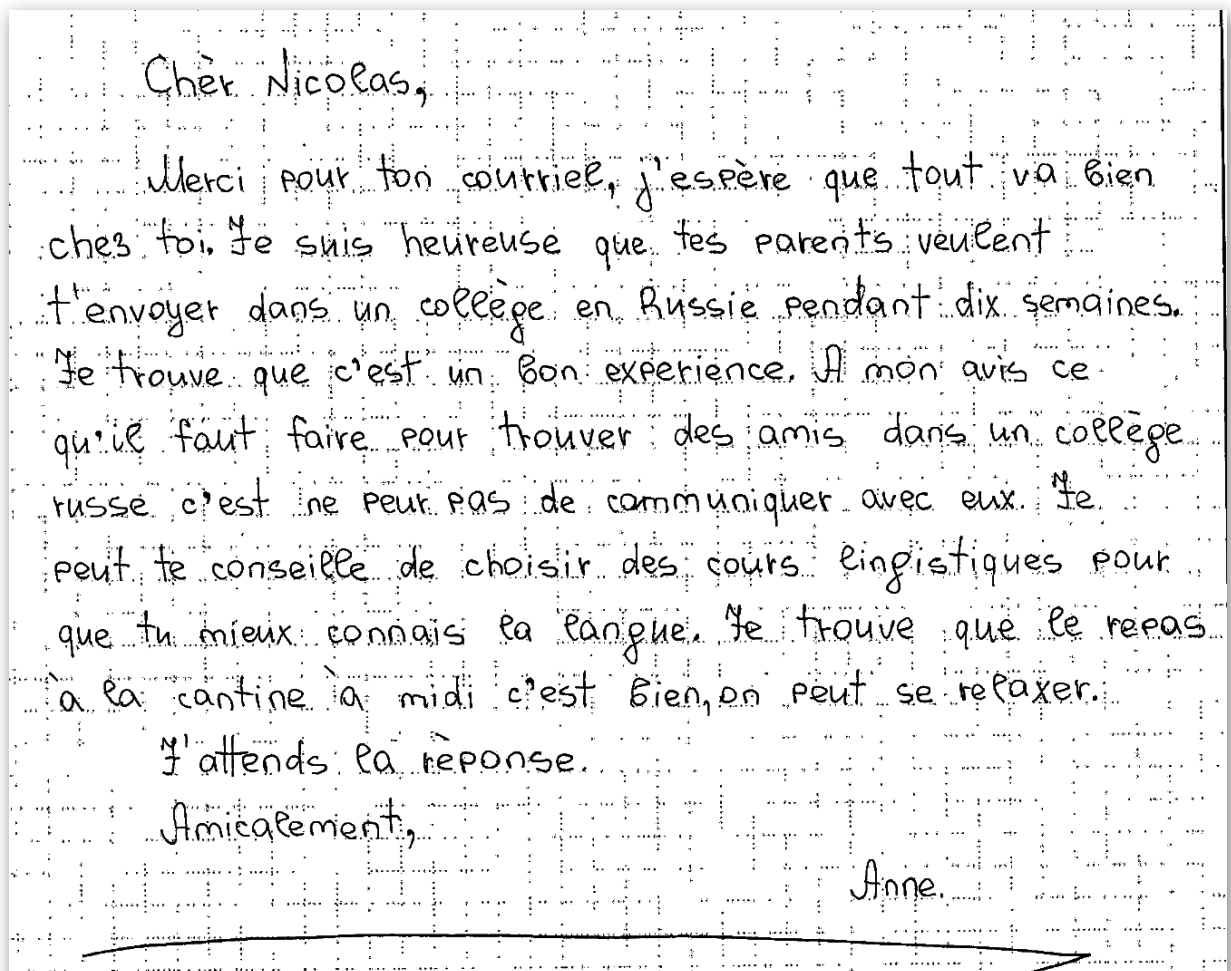 Chèr Nicolas,
Merci pour ton courriel, j'espère que tout va bien
chez toi. Je suis heureuse que tes parents veulent
t'envoyer dans un collège en Russie pendant dix semaines.
Je trouve que c'est un bon experience. A mon avis ce
qu'il faut faire pour trouver des amis dans un collège
russe c'est ne peur pas de communiquer avec eux. Je
peut te conseille de choisir des cours lingistiques pour
que tu mieux connais la langue. Je trouve que le repas
à la cantine à midi c'est bien, on peut se relaxer.
J'attends la rèponse.
Amicalement,
Anne.